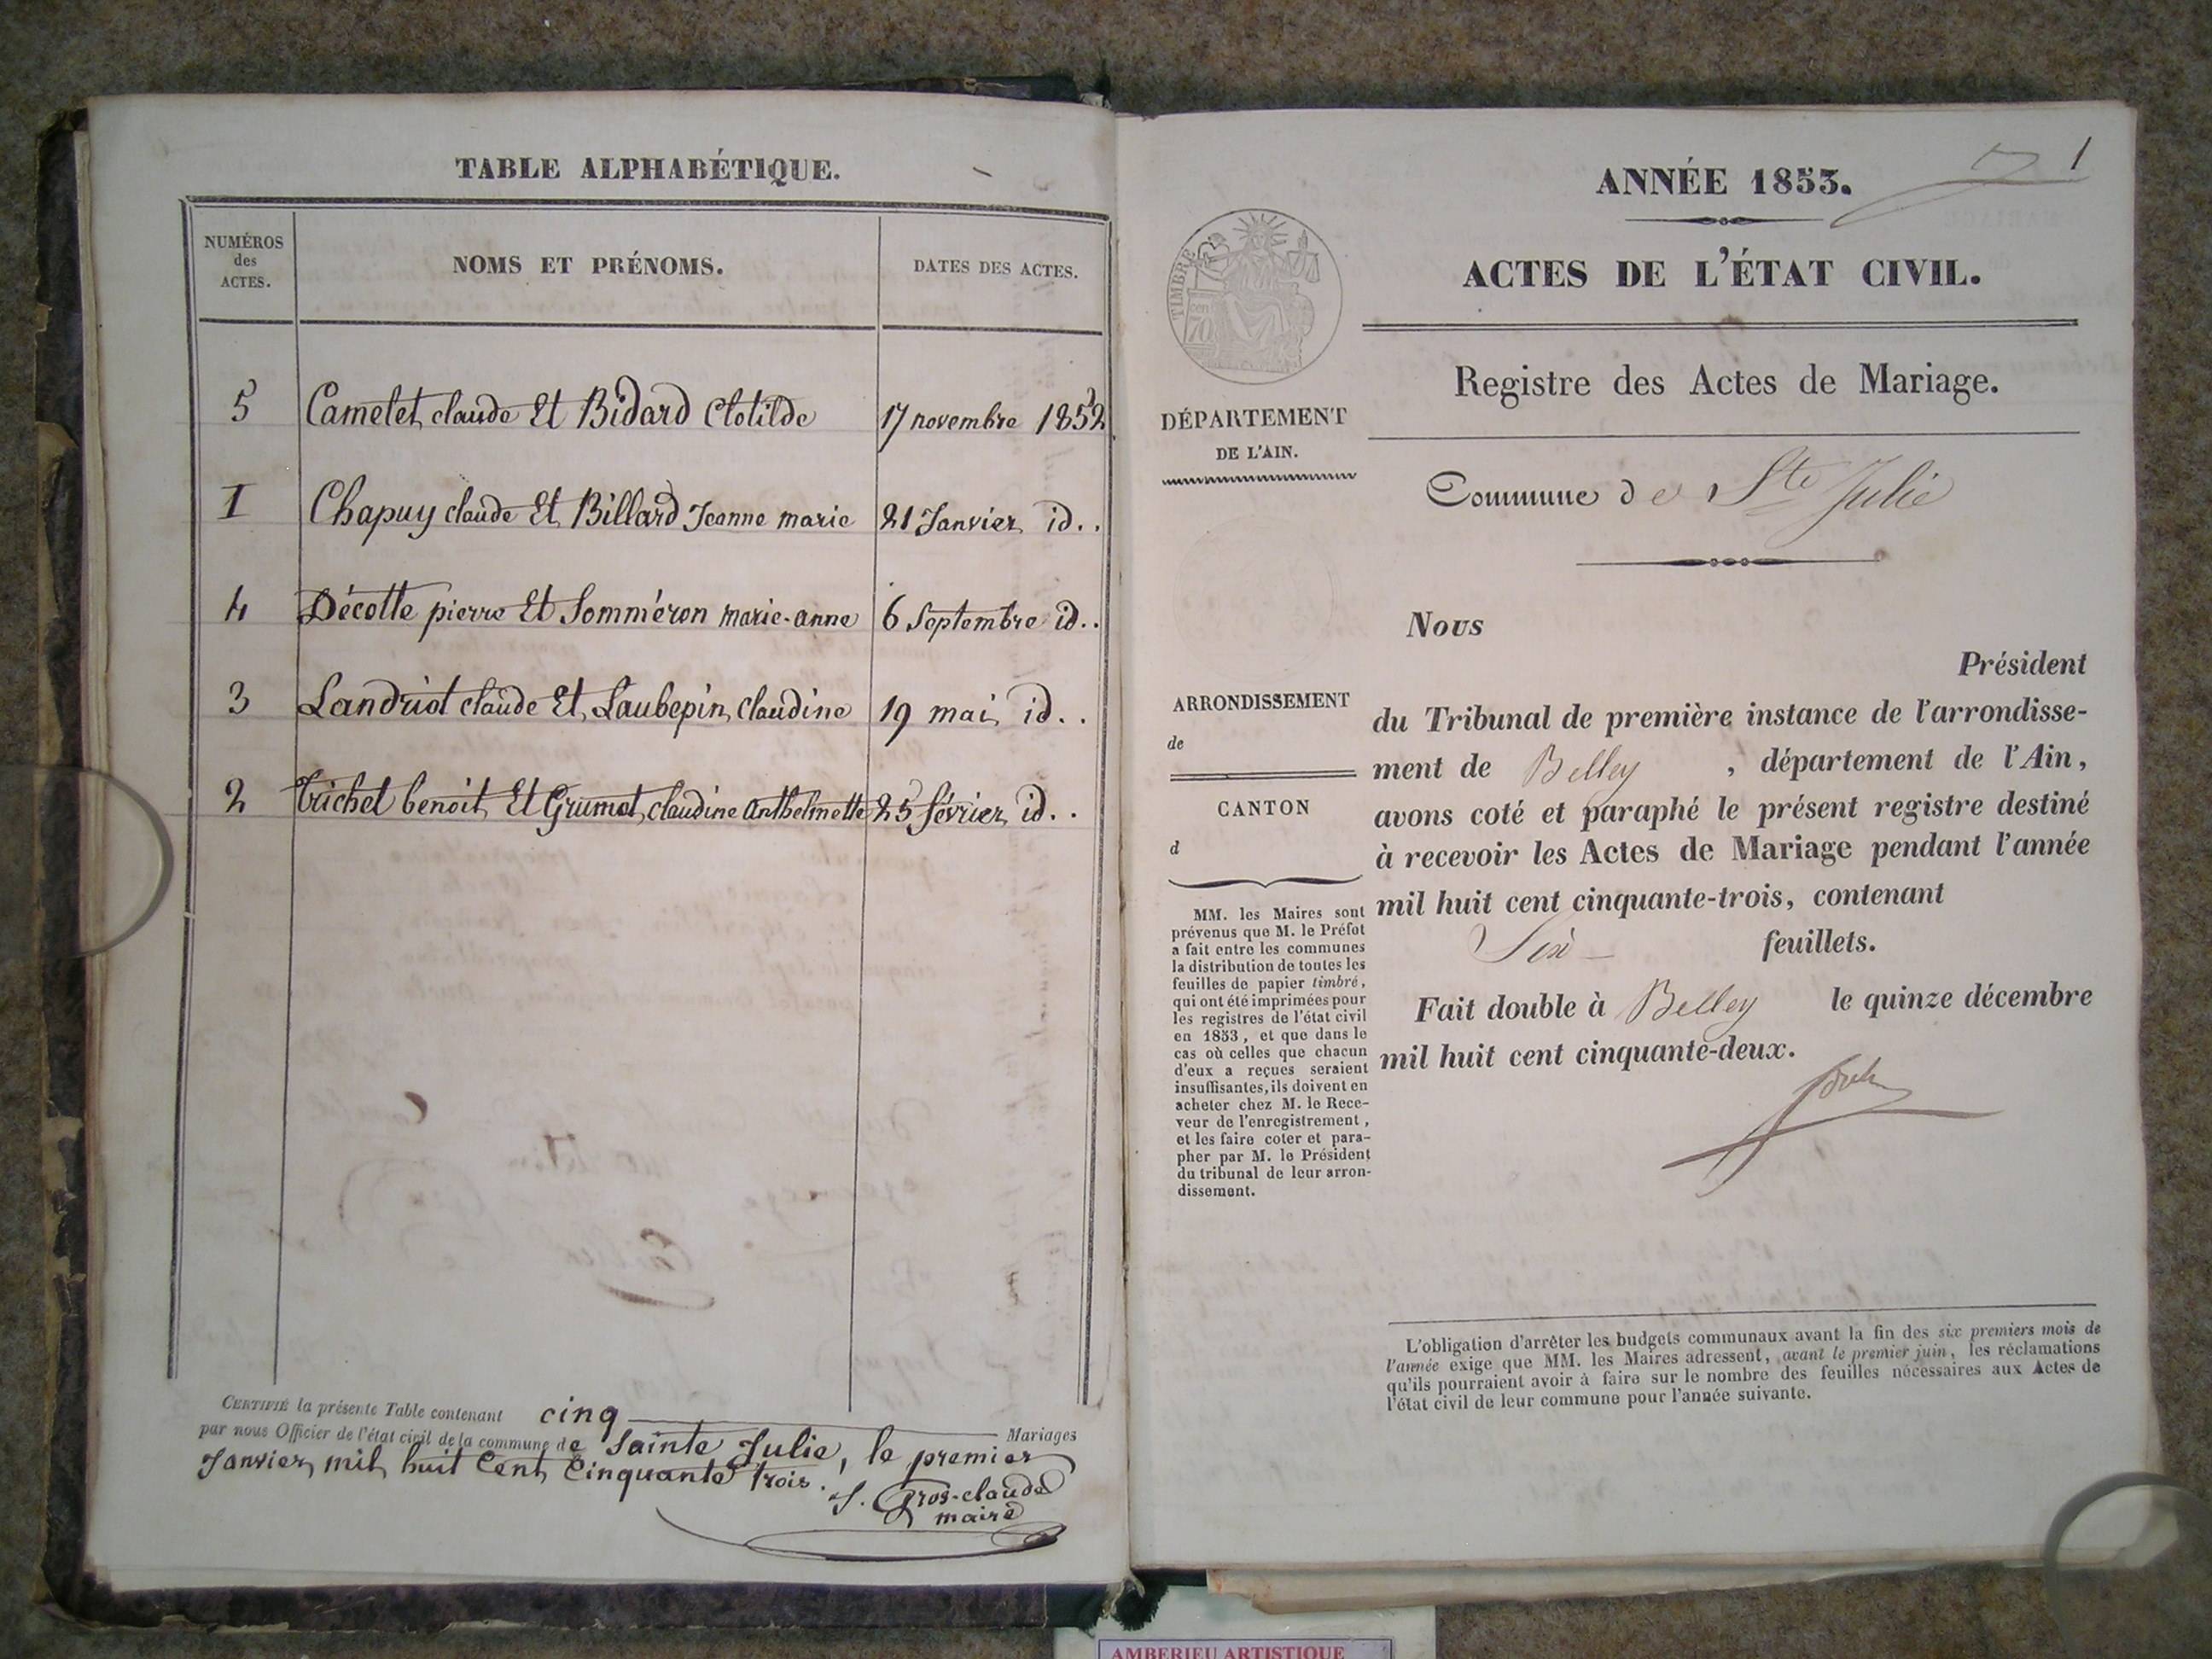 TABLE ALPHABÉTIQUE.
NUMÉROS
des
ACTES.
NOMS ET PRÉNOMS.
DATES DES ACTES.
5 Camelet claude Et Bidard Clotilde 17 novembre 1852
1 Chapuy claude Et Billard Jeanne marie 21 Janvier id..
4 Décotte pierre Et Somméron marie-anne 6 Septembre id..
3 Landriot claude Et Laubepin claudine 19 mai id..
2 Trichet benoit Et Grumet claudine Anthelmette 25 février id..
CERTIFIÉ la présente Table contenant cinq Mariages
par nous Officier de l'état civil de la commune de Sainte Julie, le premier
Janvier mil huit Cent Cinquante trois.
J. Gros-claude
maire
1
ANNÉE 1853.
ACTES DE L'ÉTAT CIVIL.
Registre des Actes de Mariage.
Commune de Ste Julie
TIMBRE
70
DÉPARTEMENT
DE L'AIN.
ARRONDISSEMENT
de
CANTON
d
MM. les Maires sont
prévenus que M. le Préfet
a fait entre les communes
la distribution de toutes les
feuilles de papier timbré,
qui ont été imprimées pour
les registres de l'état civil
en 1853, et que dans le
cas où celles que chacun
d'eux a reçues seraient
insuffisantes, ils doivent en
acheter chez M. le Rece-
veur de l'enregistrement,
et les faire coter et para-
pher par M. le Président
du tribunal de leur arron-
dissement.
Nous
Président
du Tribunal de première instance de l'arrondisse-
ment de Belley, département de l'Ain,
avons coté et paraphé le présent registre destiné
à recevoir les Actes de Mariage pendant l'année
mil huit cent cinquante-trois, contenant
Six feuillets.
Fait double à Belley le quinze décembre
mil huit cent cinquante-deux.
L'obligation d'arrêter les budgets communaux avant la fin des six premiers mois de
l'année exige que MM. les Maires adressent, avant le premier juin, les réclamations
qu'ils pourraient avoir à faire sur le nombre des feuilles nécessaires aux Actes de
l'état civil de leur commune pour l'année suivante.
AMBERIEU ARTISTIQUE